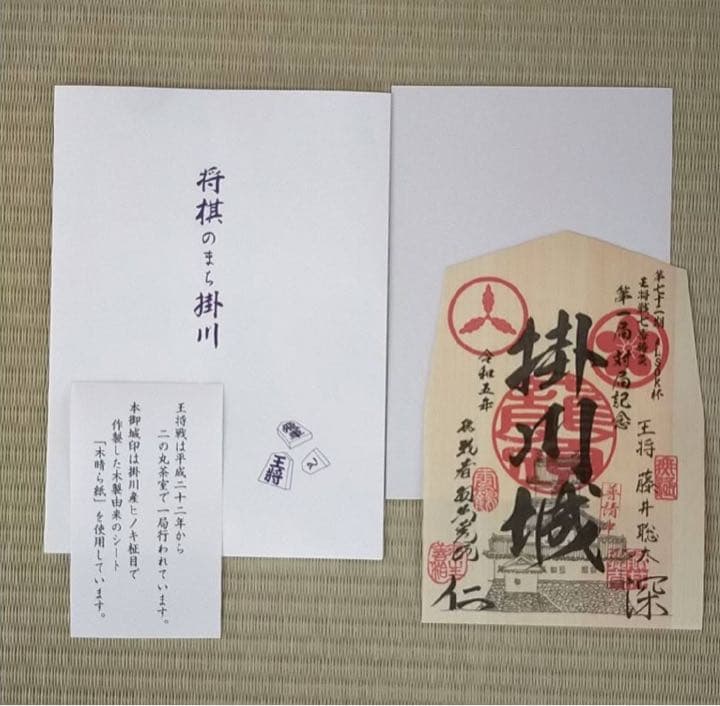 将棋のまち掛川
王将
王将戦は平成二十二年から
二の丸茶室で一局行われています。
本御城印は掛川産ヒノキ柾目で
作製した木製由来のシート
「木晴ら紙」を使用しています。
第七十二期 ALSOK杯
王将戦七番勝負
第一局対局記念
王将 藤井聡太
深
掛川城
令和五年
挑戦者 羽生善治
仁